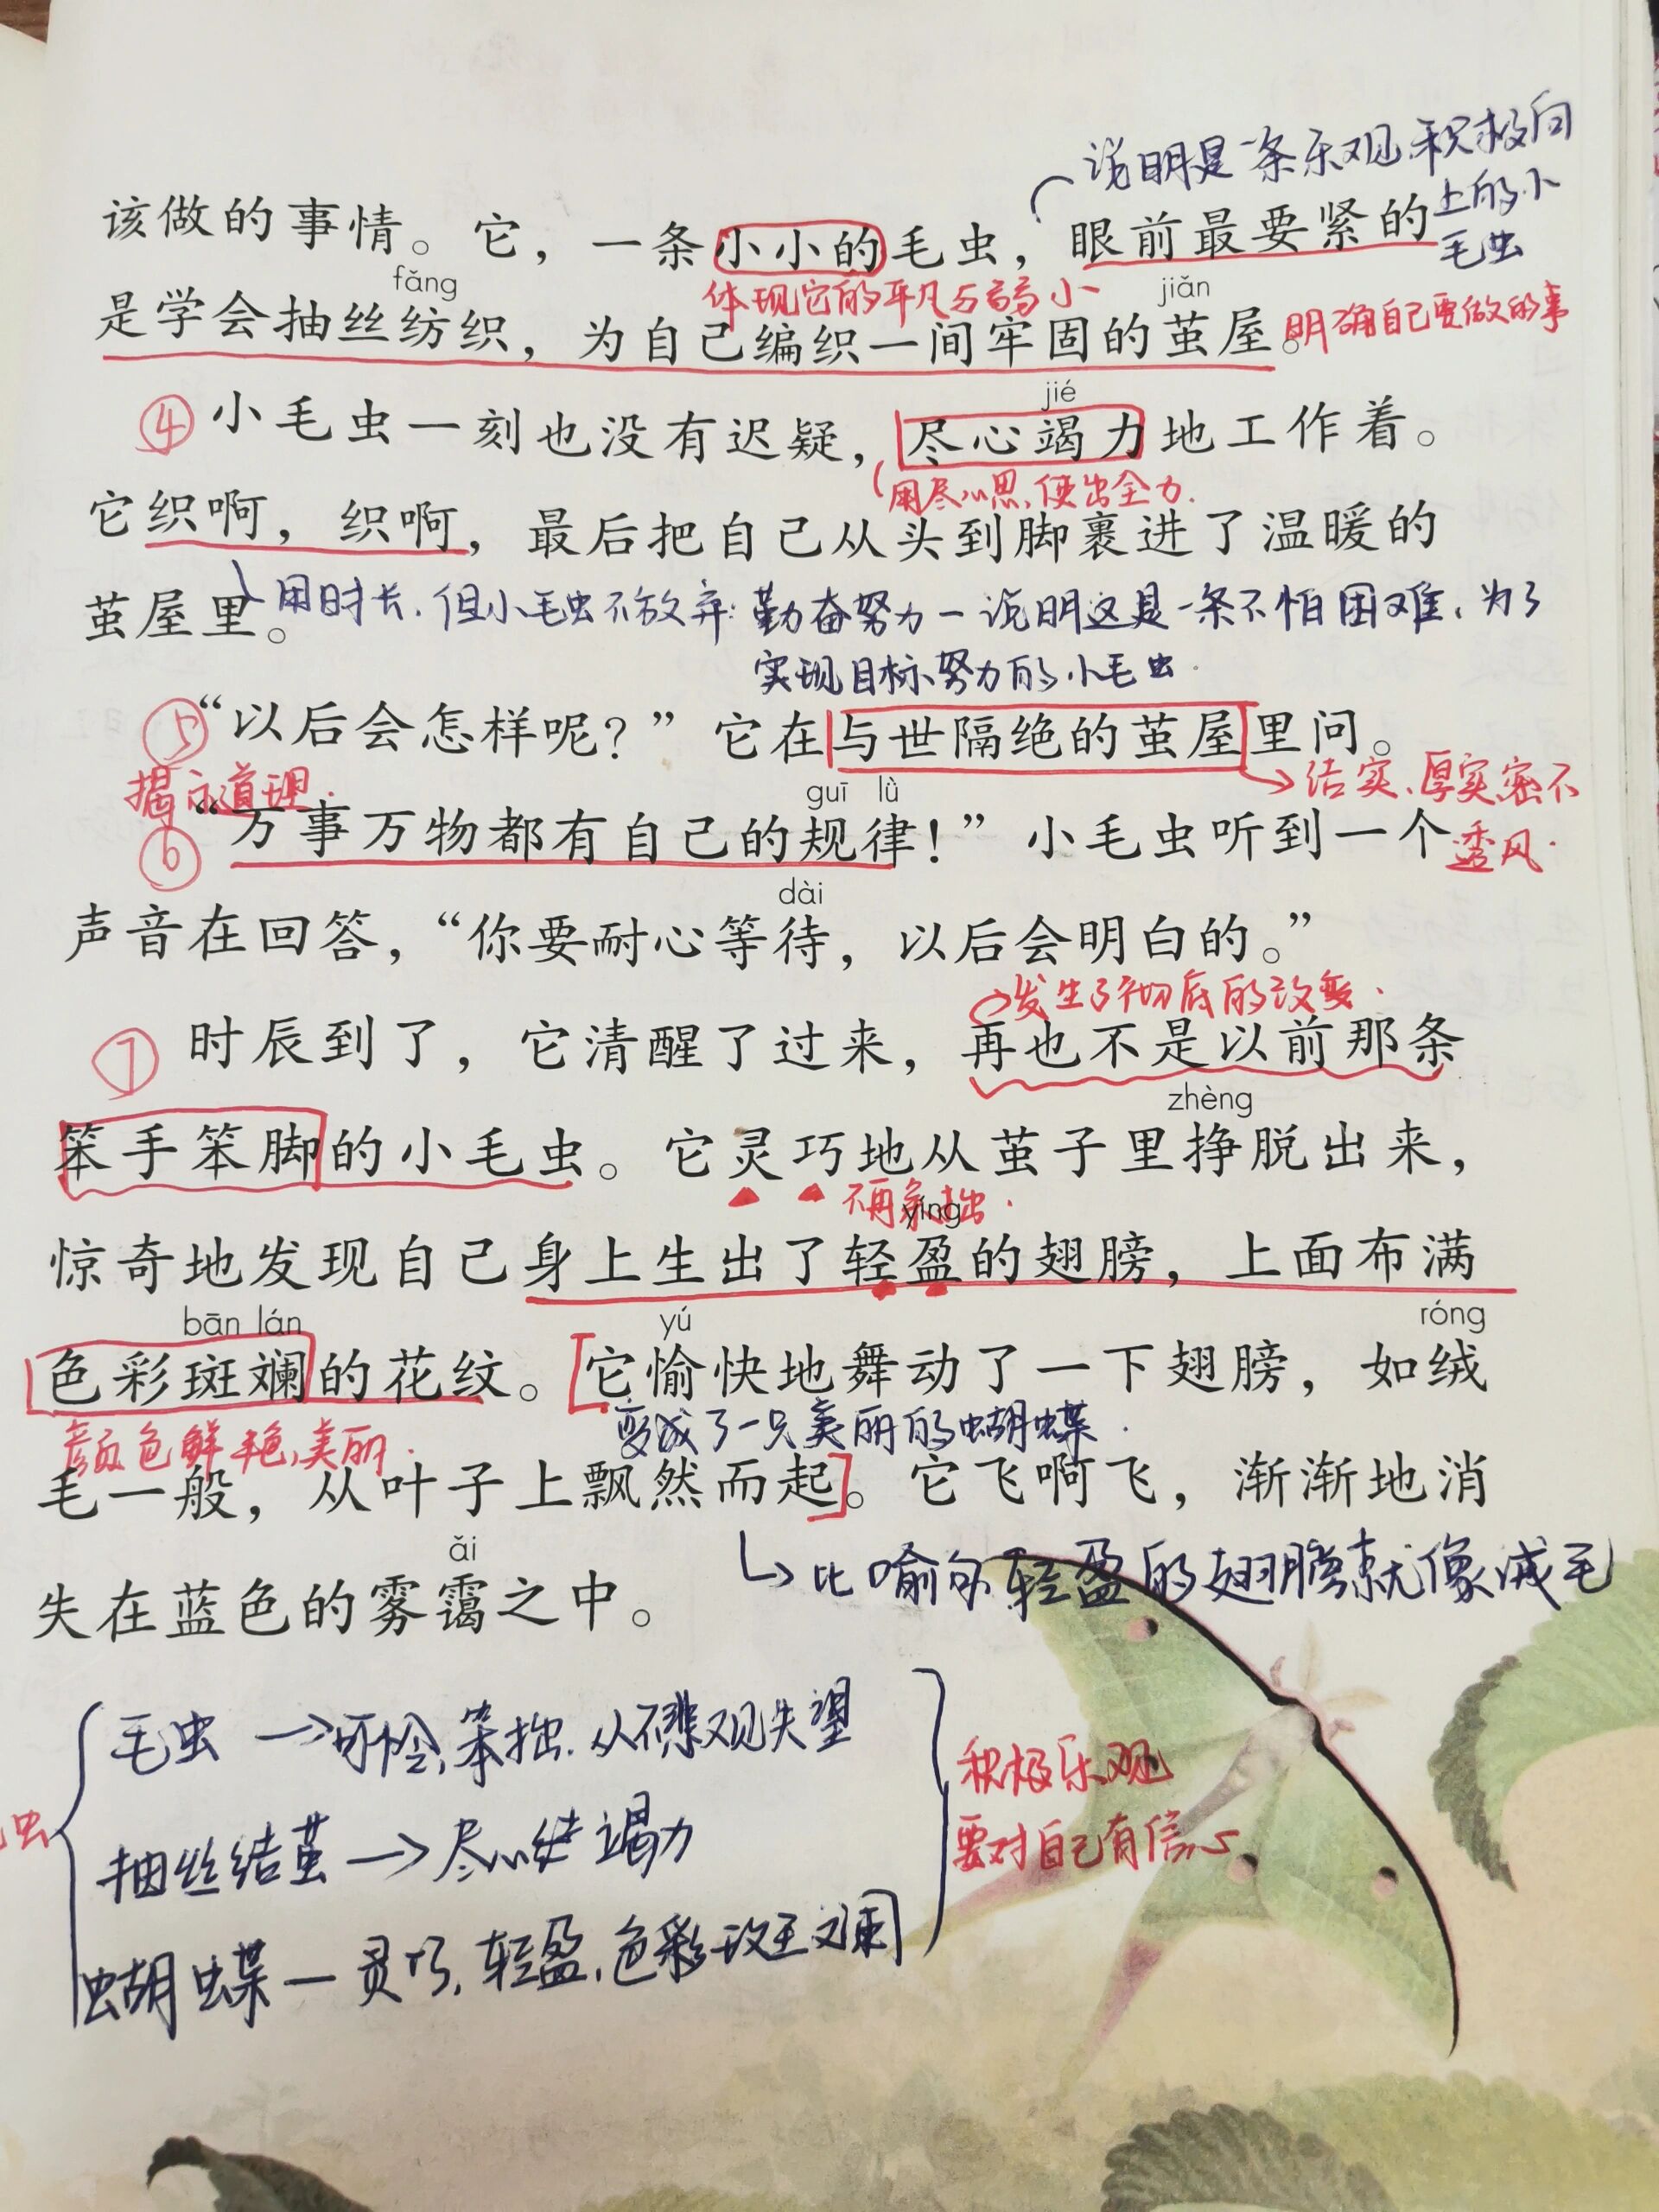 说明是一条乐观、积极向
上的小
毛虫
该做的事情。它，一条小小的毛虫，眼前最要紧的
体现它的平凡与弱小
fǎng jiǎn
是学会抽丝纺织，为自己编织一间牢固的茧屋。
明确自己要做的事
jié
④小毛虫一刻也没有迟疑，尽心竭力地工作着。
用尽心思，使出全力.
它织啊，织啊，最后把自己从头到脚裹进了温暖的
茧屋里。
用时长.但小毛虫不放弃:勤奋努力—说明这是一条不怕困难、为了
实现目标努力的小毛虫.
⑤“以后会怎样呢？”它在与世隔绝的茧屋里问。
结实、厚实,密不
透风.
揭示道理.
guī lǜ
⑥“万事万物都有自己的规律！”小毛虫听到一个
dài
声音在回答，“你要耐心等待，以后会明白的。”
发生了彻底的改变.
⑦时辰到了，它清醒了过来，再也不是以前那条
zhèng
笨手笨脚的小毛虫。它灵巧地从茧子里挣脱出来，
不再笨拙.
yíng
惊奇地发现自己身上生出了轻盈的翅膀，上面布满
bān lán yú róng
色彩斑斓的花纹。它愉快地舞动了一下翅膀，如绒
颜色鲜艳,美丽.
变成了一只美丽的蝴蝶.
毛一般，从叶子上飘然而起。它飞啊飞，渐渐地消
ǎi
失在蓝色的雾霭之中。
比喻句 轻盈的翅膀就像绒毛
毛虫→可怜,笨拙.从不悲观失望
抽丝结茧→尽心竭力
虫
蝴蝶—灵巧,轻盈,色彩斑斓
积极乐观
要对自己有信心